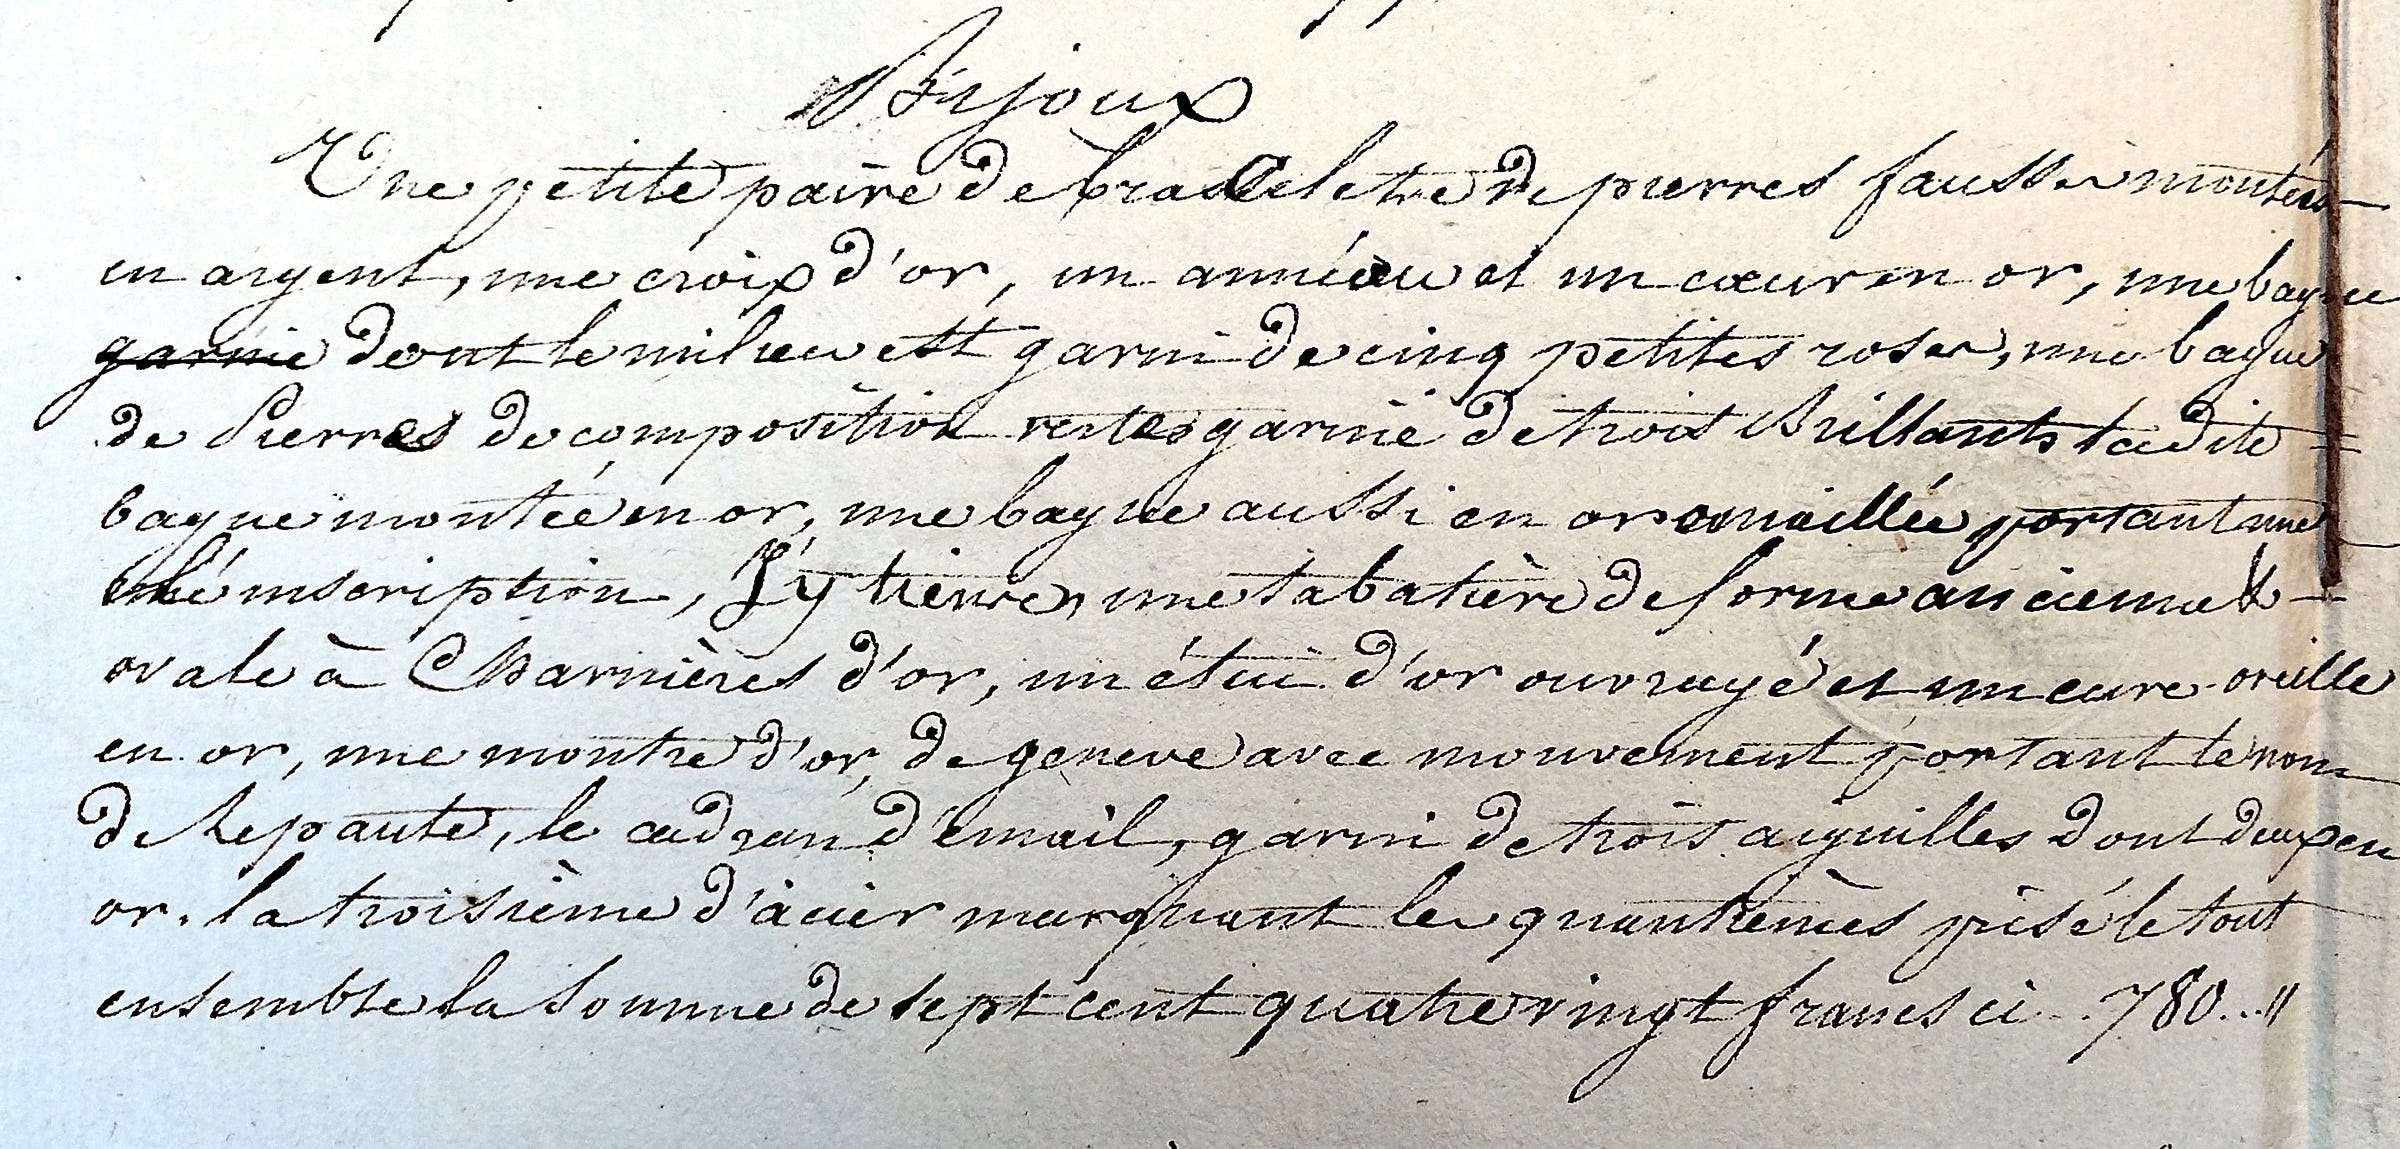 Bijoux
Une petite paire de bracelets de pierres fausses montées
en argent, une croix d'or, un annéau et un cœur en or, une bague
garnie dont le milieu est garni de cinq petites roses, une bague
de Pierres de composition vertes garnie de trois Brillants ladite
bague montée en or, une bague aussi en or emaillée portant une
inscription, J'y tiens, une tabatière de forme ancienne
ovale à Charnières d'or, un étui d'or ouvragé et un cure-oreille
en or, une montre d'or, de geneve avec mouvement portant le nom
de Lepaute, le cadran d'émail, garni de trois aiguilles dont deux en
or. la troisième d'acier marquant les quantièmes prisé le tout
ensemble la Somme de sept cent quatre vingt francs ci... 780.. "